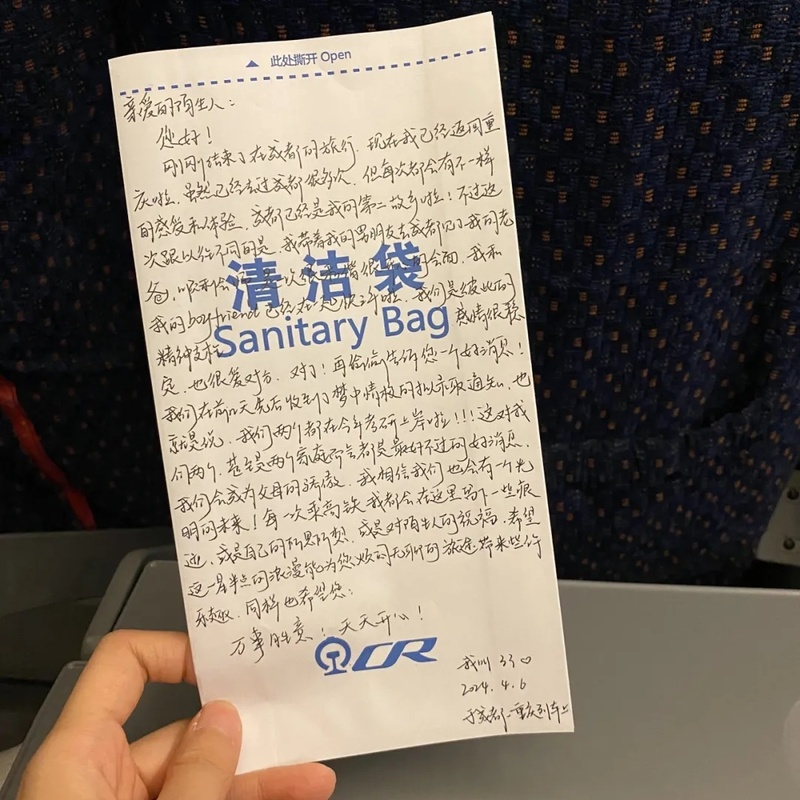 ▲ 此处撕开 Open
亲爱的陌生人：
您好！
刚刚结束了在成都的旅行，现在我已经返回重
庆啦，虽然已经去过成都很多次，但每次都会有不一样
的感受和体验，成都已经是我的第二故乡啦！不过这
次跟以往不同的是，我带着我的男朋友去成都见了我的老
爸，的会面，我和
我的boyfriend已经在一起啦，我们是彼此的
清洁袋
精神支柱，感情很稳
Sanitary Bag
定，也很爱对方，对了！再偷偷告诉您一个好消息！
我们在前几天先后收到了梦中情校的拟录取通知，也
就是说，我们两个都在今年考研上岸啦！！！这对我
们两个，甚至是两个家庭而言都是最好不过的好消息，
我们会成为父母的骄傲，我相信我们也会有一个光
明的未来！每一次乘高铁我都会在这里写下一些痕
迹，或是自己的所思所想，或是对陌生人的祝福，希望
这一星半点的浪漫能为您的无聊的旅途带来些许
乐趣，同样也希望您：
万事胜意！天天开心！
CR
我叫
2024.4.6
于成都-重庆列车上